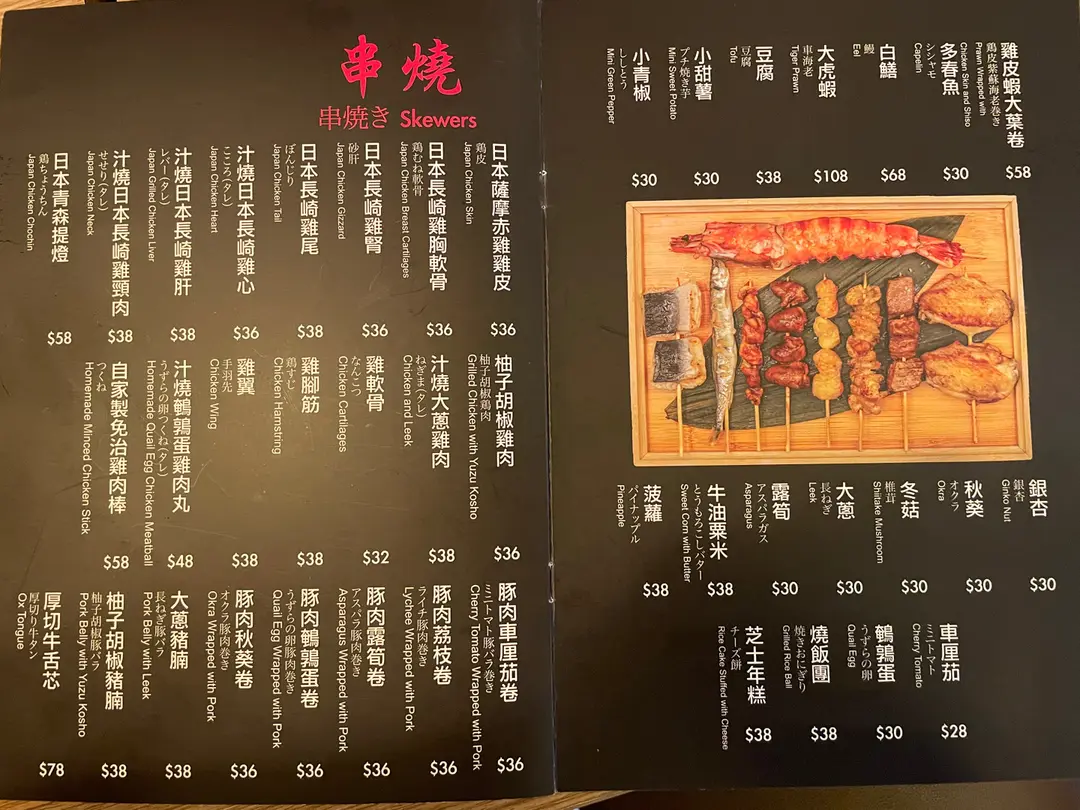 串燒
串焼き Skewers
日本薩摩赤雞雞皮
鶏皮
Japan Chicken Skin
$36
日本長崎雞胸軟骨
鶏むね軟骨
Japan Chicken Breast Cartilages
$36
日本長崎雞腎
砂肝
Japan Chicken Gizzard
$36
日本長崎雞尾
ぼんじり
Japan Chicken Tail
$38
汁燒日本長崎雞心
こころ(タレ)
Japan Chicken Heart
$36
汁燒日本長崎雞肝
レバー(タレ)
Japan Grilled Chicken Liver
$38
汁燒日本長崎雞頸肉
せせり(タレ)
Japan Chicken Neck
$38
日本青森提燈
鶏ちょうちん
Japan Chicken Chochin
$58
柚子胡椒雞肉
柚子胡椒鶏肉
Grilled Chicken with Yuzu Kosho
$36
汁燒大蔥雞肉
ねぎま(タレ)
Chicken and Leek
$38
雞軟骨
なんこつ
Chicken Cartilages
$32
雞腳筋
鶏すじ
Chicken Hamstring
$38
雞翼
手羽先
Chicken Wing
$38
汁燒鵪鶉蛋雞肉丸
うずらの卵つくね(タレ)
Homemade Quail Egg Chicken Meatball
$48
自家製免治雞肉棒
つくね
Homemade Minced Chicken Stick
$58
豚肉車厘茄卷
ミニトマト豚バラ巻き
Cherry Tomato Wrapped with Pork
$36
豚肉荔枝卷
ライチ豚肉巻き
Lychee Wrapped with Pork
$36
豚肉露筍卷
アスパラ豚肉巻き
Asparagus Wrapped with Pork
$36
豚肉鵪鶉蛋卷
うずらの卵豚肉巻き
Quail Egg Wrapped with Pork
$36
豚肉秋葵卷
オクラ豚肉巻き
Okra Wrapped with Pork
$36
大蔥豬腩
長ねぎ豚バラ
Pork Belly with Leek
$38
柚子胡椒豬腩
柚子胡椒豚バラ
Pork Belly with Yuzu Kosho
$38
厚切牛舌芯
厚切り牛タン
Ox Tongue
$78
雞皮蝦大葉卷
鶏皮紫蘇海老巻き
Prawn Wrapped with
Chicken Skin and Shiso
$58
多春魚
シシャモ
Capelin
$30
白鱔
鰻
Eel
$68
大虎蝦
車海老
Tiger Prawn
$108
豆腐
豆腐
Tofu
$38
小甜薯
プチ焼き芋
Mini Sweet Potato
$30
小青椒
ししとう
Mini Green Pepper
$30
銀杏
銀杏
Ginko Nut
$30
秋葵
オクラ
Okra
$30
冬菇
椎茸
Shiitake Mushroom
$30
大蔥
長ねぎ
Leek
$30
露筍
アスパラガス
Asparagus
$30
牛油粟米
とうもろこしバター
Sweet Corn with Butter
$38
菠蘿
パイナップル
Pineapple
$38
車厘茄
ミニトマト
Cherry Tomato
$28
鵪鶉蛋
うずらの卵
Quail Egg
$30
燒飯團
焼きおにぎり
Grilled Rice Ball
$38
芝士年糕
チーズ餅
Rice Cake Stuffed with Cheese
$38